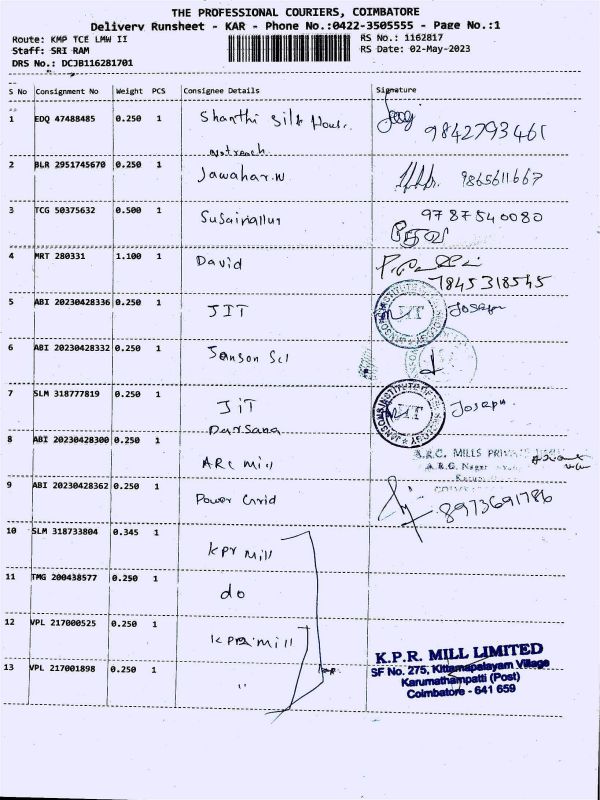 THE PROFESSIONAL COURIERS, COIMBATORE
Delivery Runsheet - KAR - Phone No.:0422-3505555 - Page No.:1
Route: KMP TCE LMW II
RS No.: 1162817
Staff: SRI RAM
RS Date: 02-May-2023
DRS No.: DCJB116281701
S No Consignment No Weight PCS Consignee Details Signature
1 EDQ 47488485 0.250 1 Shanthi Silk House. 9842793461
outreach
2 BLR 2951745670 0.250 1 Jawahar.N 9865611667
3 TCG 50375632 0.500 1 9787540080
4 MRT 280331 1.100 1 David
7845318545
5 ABI 20230428336 0.250 1 JIT JIT Joseph
6 ABI 20230428332 0.250 1 Janson Scl
7 SLM 318777819 0.250 1 JIT JIT Joseph
Darsana
8 ABI 20230428300 0.250 1 ARC Mill
A.R.C. MILLS PRIVATE
A.R.C. Nagar
9 ABI 20230428362 0.250 1 Power Grid 8973691786
10 SLM 318733804 0.345 1 KPR Mill
11 TMG 200438577 0.250 1 do
12 VPL 217000525 0.250 1 KPR Mill
13 VPL 217001898 0.250 1 "
K.P.R. MILL LIMITED
SF No. 275, Kittampalayam Village
Karumathampatti (Post)
Coimbatore - 641 659